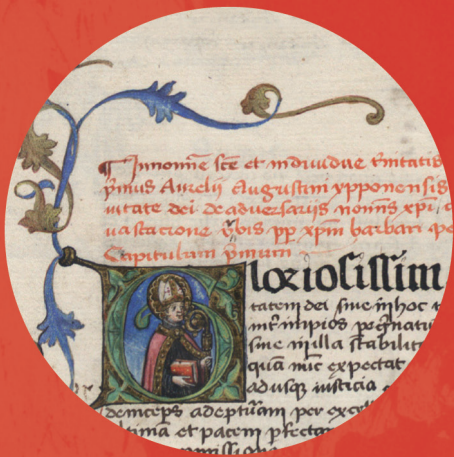 ¶ In nomīe sc̄e et indiuidue trinitatis
p̄mus Aurelij Augustini ypponensis
uitate dei de aduersarijs nominis xp̄i,
uastacione vrbis pp̄ xp̄m barbari
Capitulum p̄mum
loriosissim
tatem dei siue in hoc t
int' impios pegrinatu
siue in illa stabilit
quā nūc expectat
adusq iusticia
deinceps adeptuam per excell
ultima et pacem pfecta